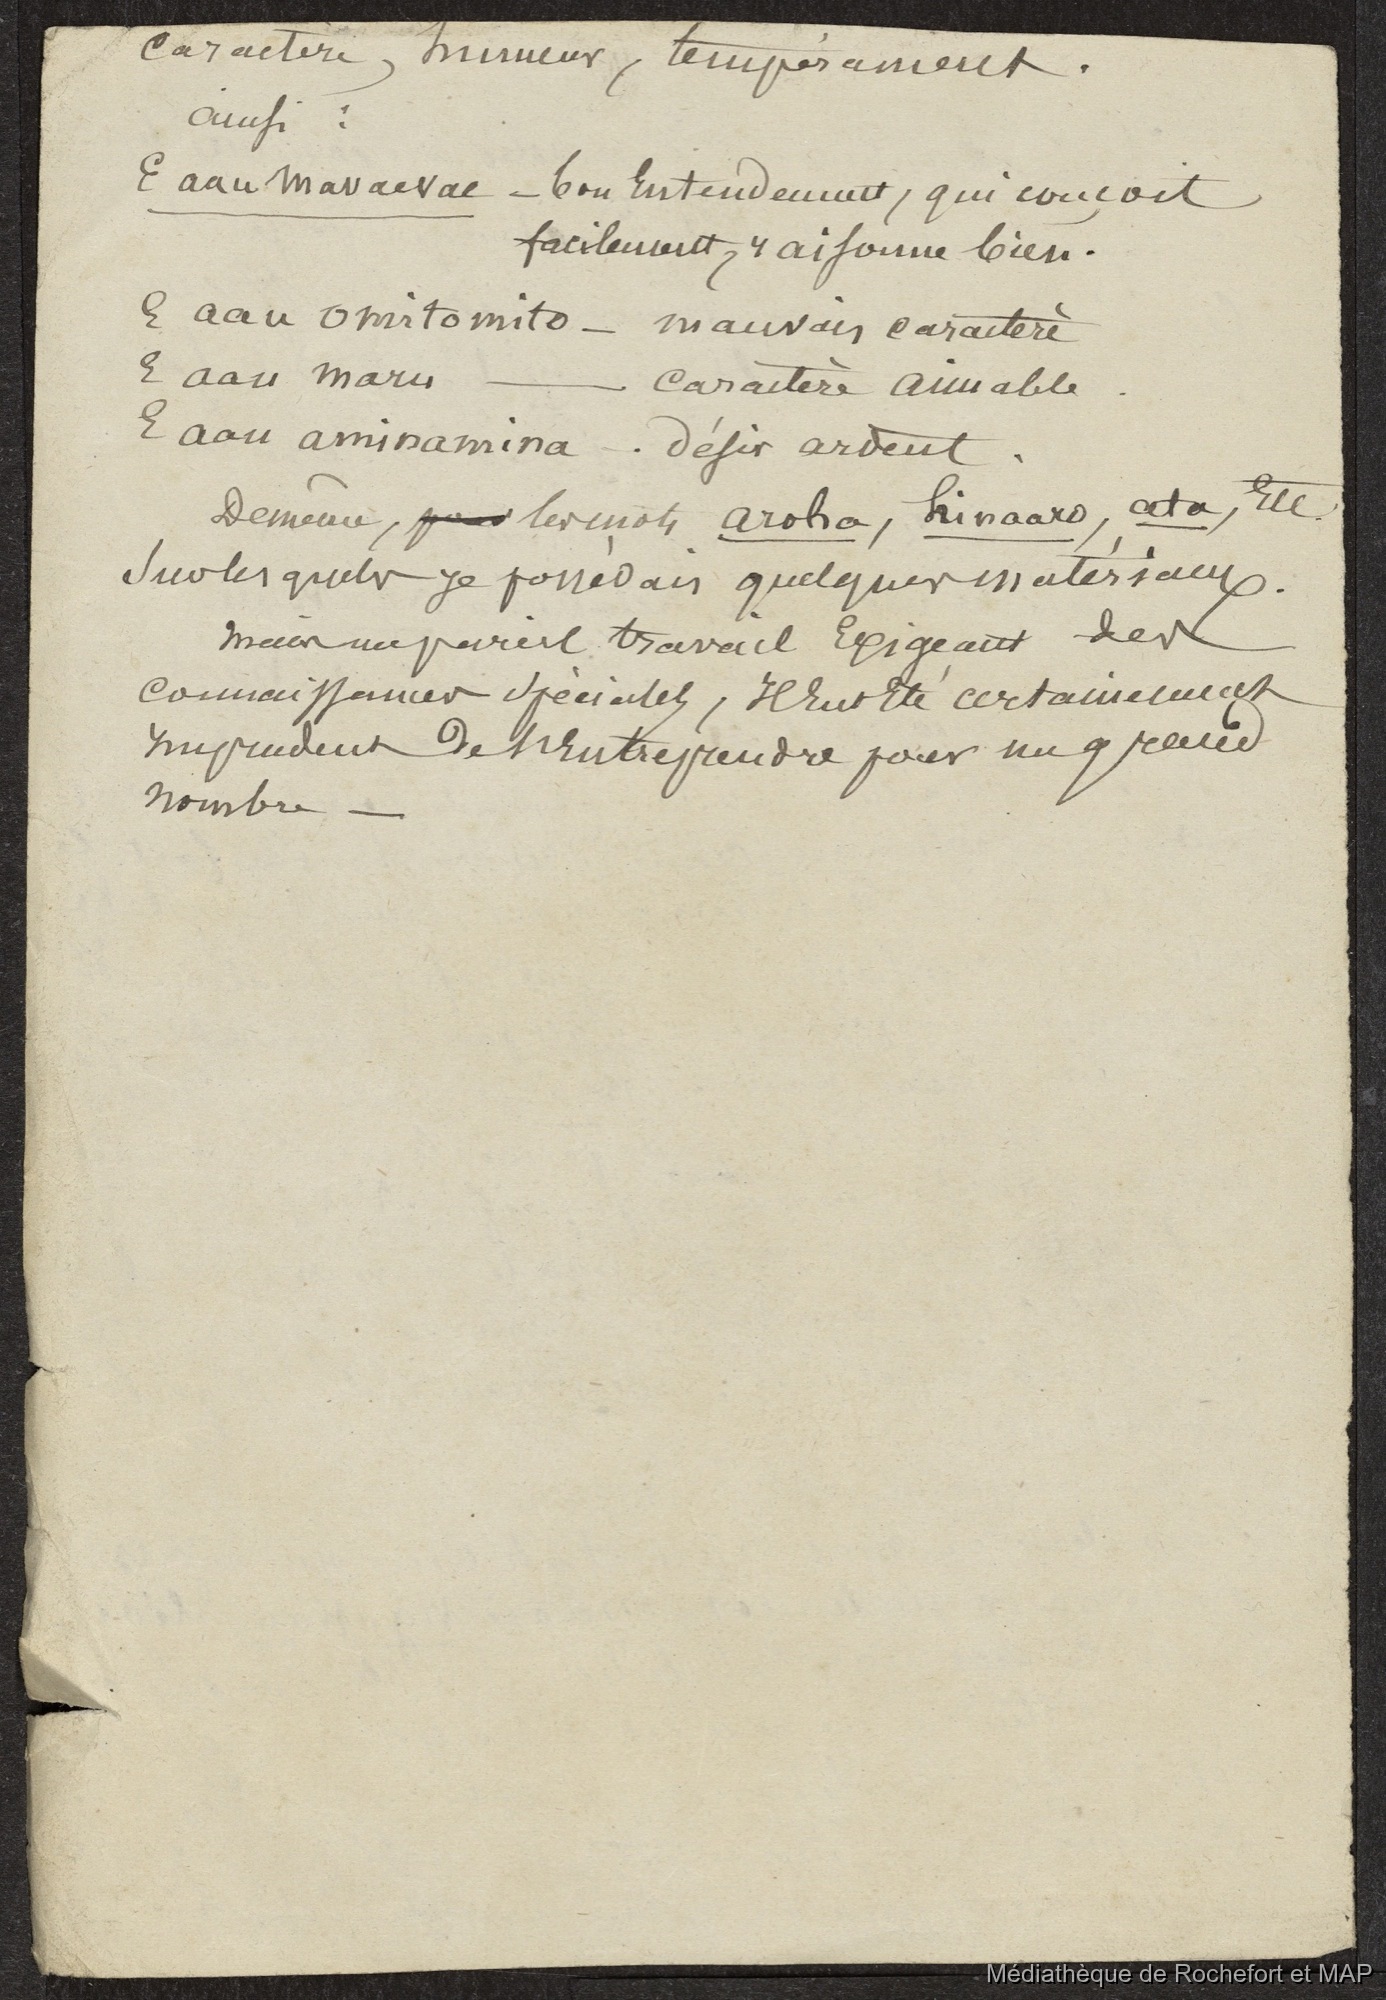 caractère, humeur, tempérament.
ainsi :
E aau mavaevae – bon Entendement, qui conçoit
facilement, raisonne bien.
E aau omitomito – mauvais caractère
E aau maru — caractère aimable.
E aau aminamina –. désir ardent.
De même, pour les mots aroha, hinaaro, ata, Etc.
Sur lesquels je possédais quelques matériaux.
Mais un pareil travail Exigeant des
connaissances spéciales, il Eut Eté certainement
imprudent de l'Entreprendre pour un grand
nombre —
Médiathèque de Rochefort et MAP